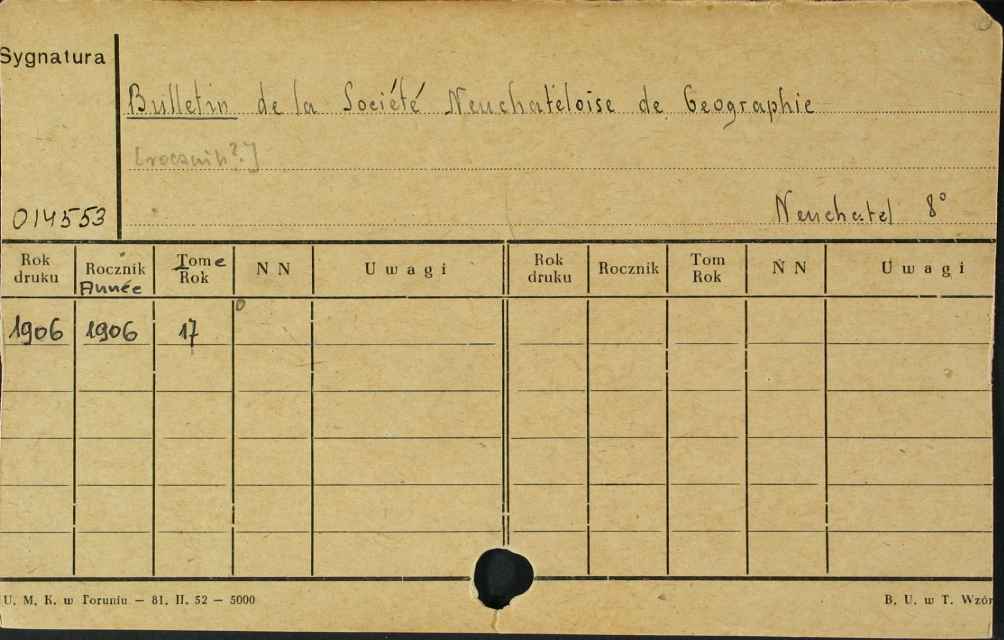 Sygnatura
Bulletin de la Société Neuchateloise de Geographie
[rocznik?]
014553
Neuchatel 8°
Rok druku Rocznik Année Tome Rok N N Uwagi Rok druku Rocznik Tom Rok N N Uwagi
1906 1906 17
U. M. K. w Toruniu — 81. II. 52 — 5000 B. U. w T. Wzór